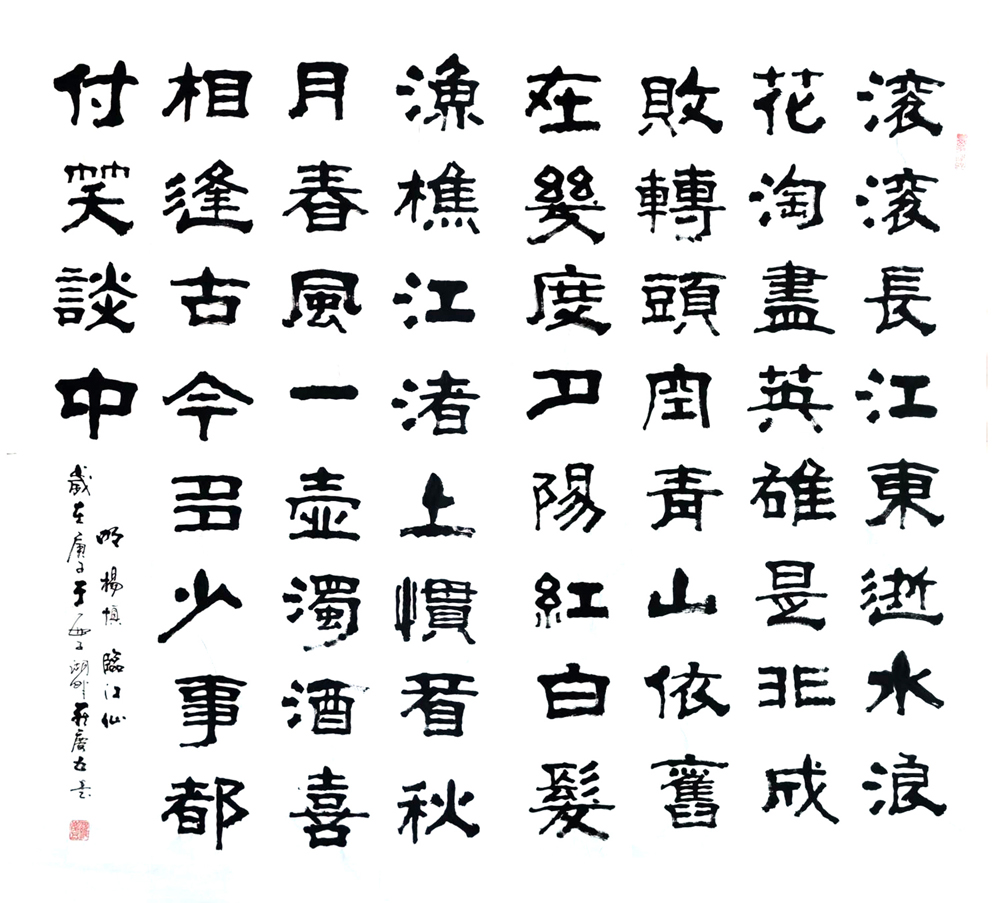 滚滚長江東逝水浪
花淘盡英雄是非成
敗轉頭空青山依舊
在幾度夕陽紅白髮
漁樵江渚上慣看秋
月春風一壺濁酒喜
相逢古今多少事都
付笑談中
明楊慎臨江仙
歲在庚子